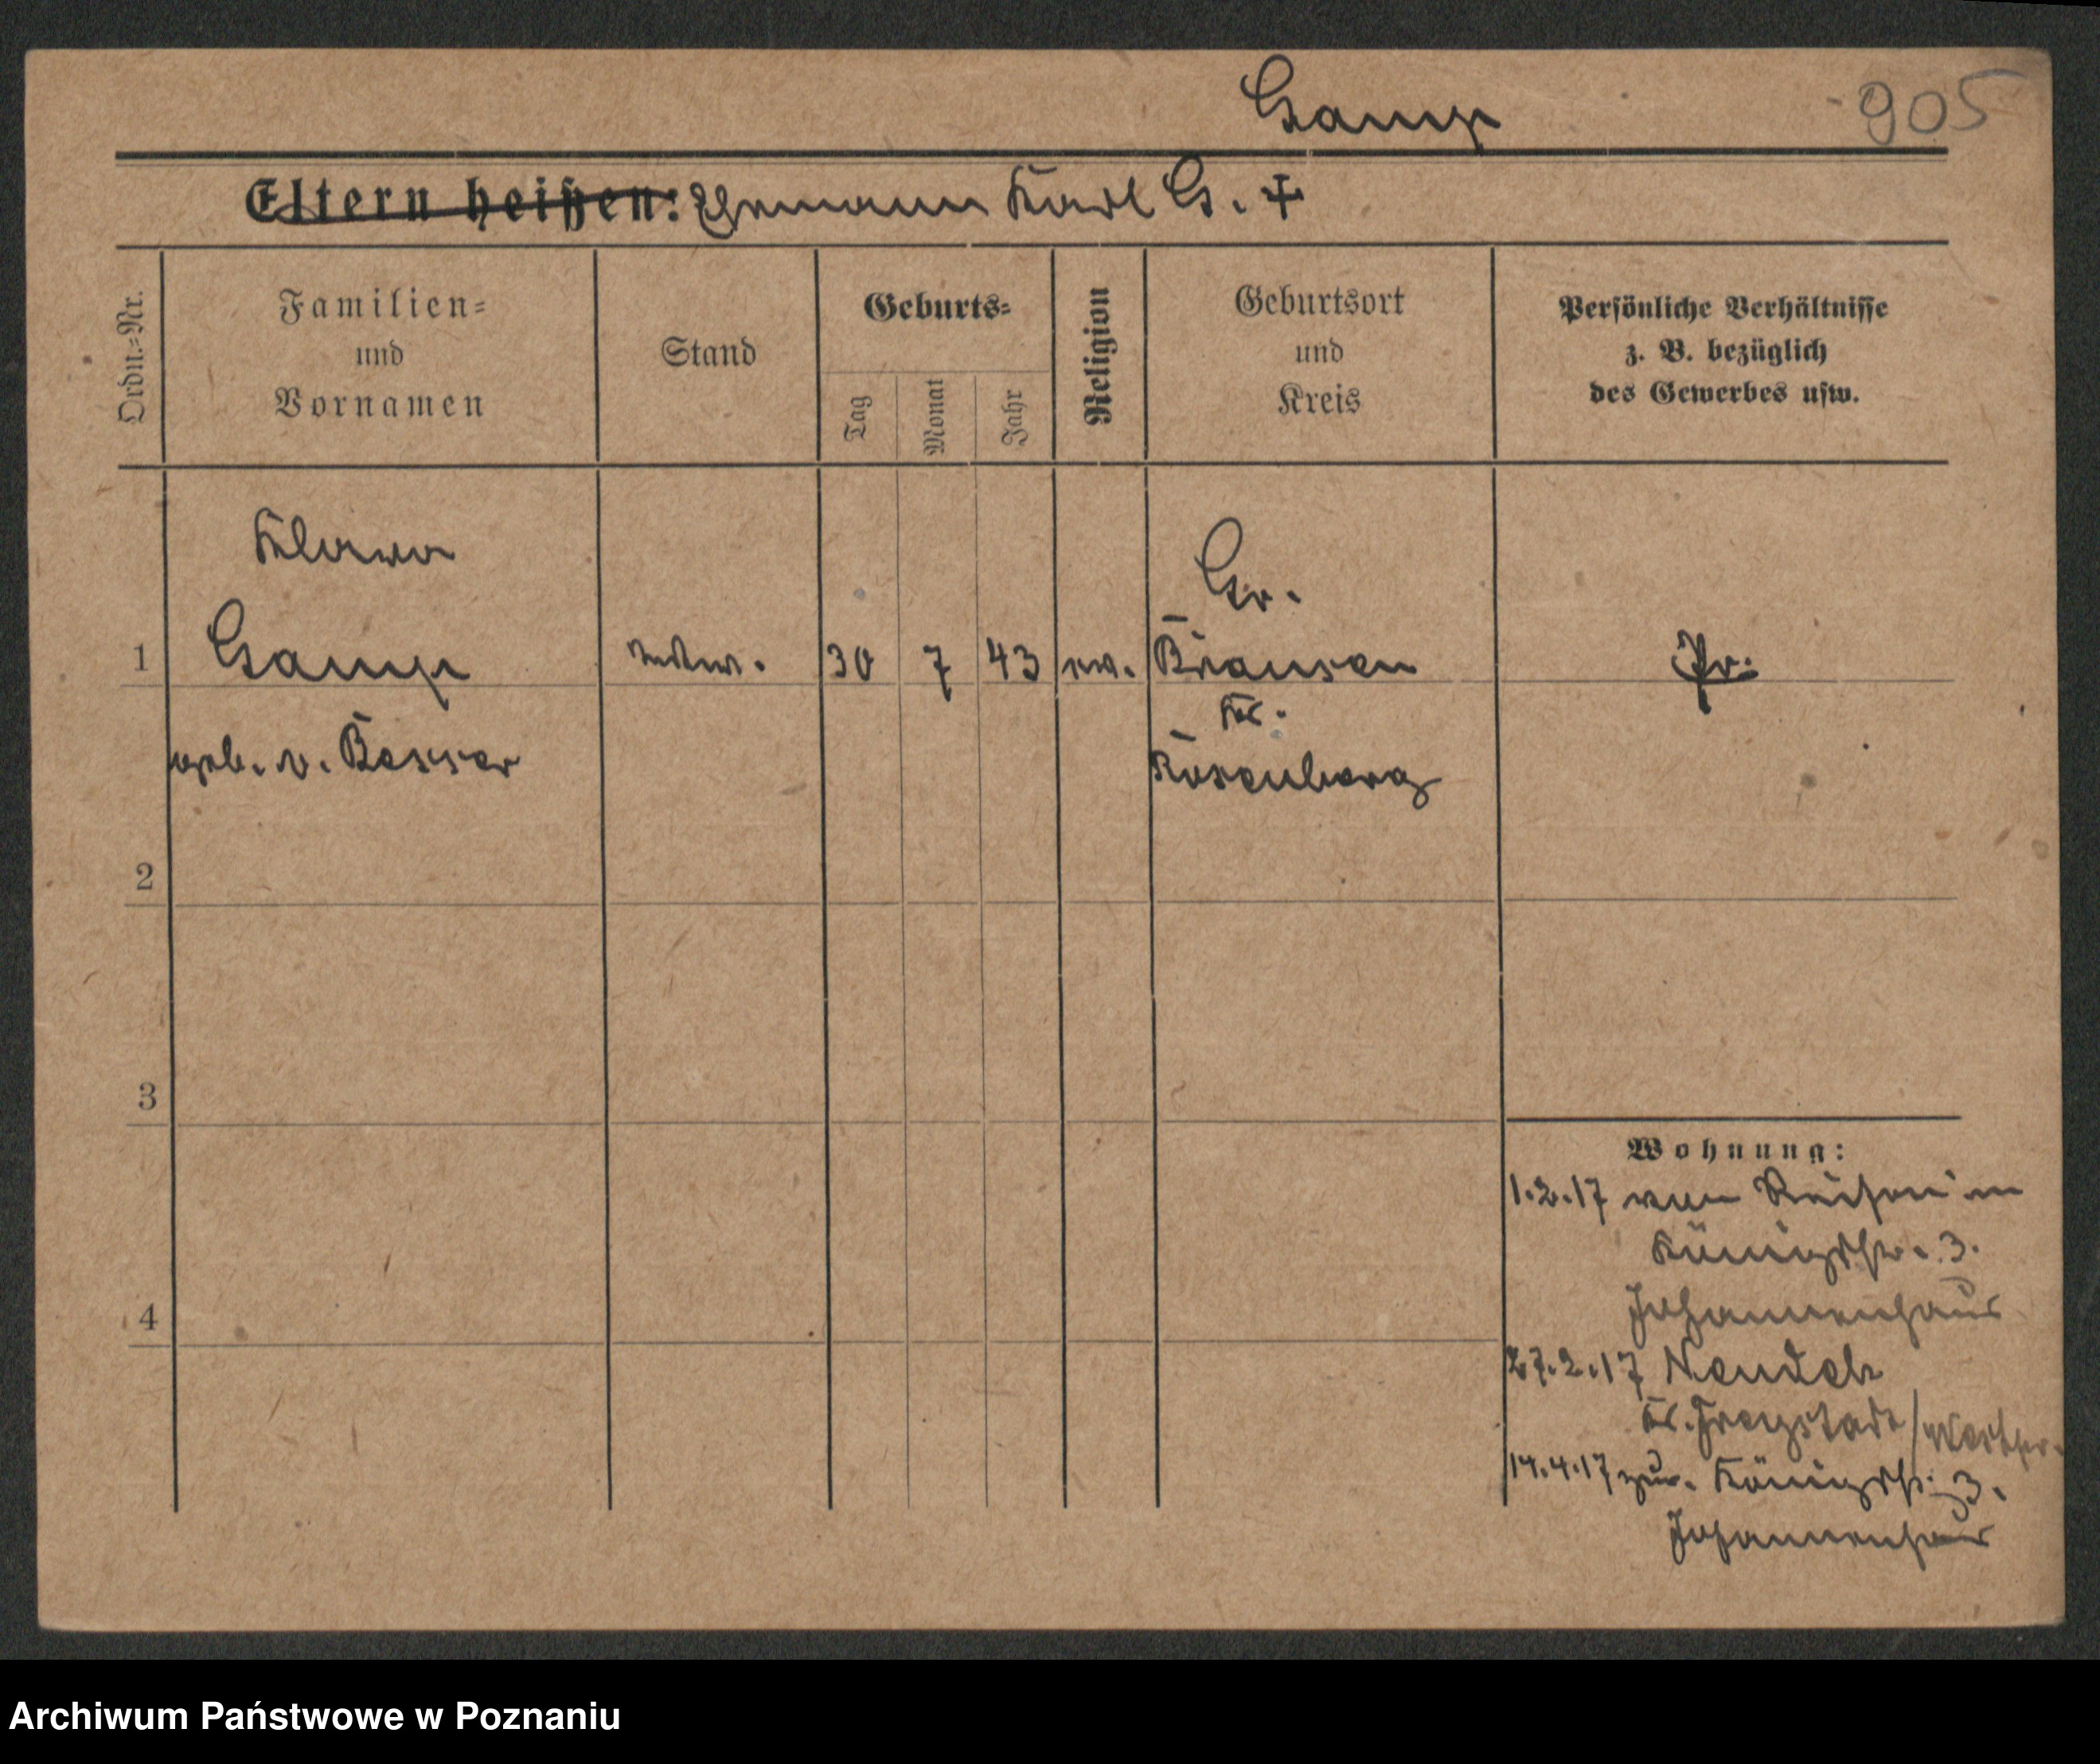 Gamp
905
Eltern heißen: Ehemann Karl G. †
Ordn.-Nr.
Familien-
und
Vornamen
Stand
Geburts-
Tag
Monat
Jahr
Religion
Geburtsort
und
Kreis
Persönliche Verhältnisse
z. B. bezüglich
des Gewerbes usw.
Klara
Gr.
1 Gamp wtw. 30 7 43 ev. Brausen Pr.
Kr.
geb. v. Besser
Rosenberg
2
3
Wohnung:
1.2.17 von
Königstr. 3.
Johannenhaus
4
27.2.17 Neudeck
Kr. Freystadt/Westpr.
14.4.17 zur. Königstr. 3.
Johannenhaus
Archiwum Państwowe w Poznaniu